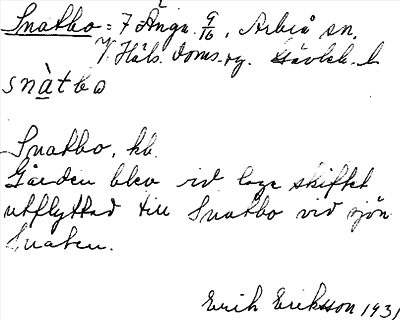 Snatbo = 7 Ängr. 9/16, Arbrå sn.
V. Häls. doms.-g. Gävleb. l.
snàtbo
Snatbo, kb.
Gården blev vid laga skiftet
utflyttad till Snatbo vid sjön
Snaten.
Erik Eriksson 1931